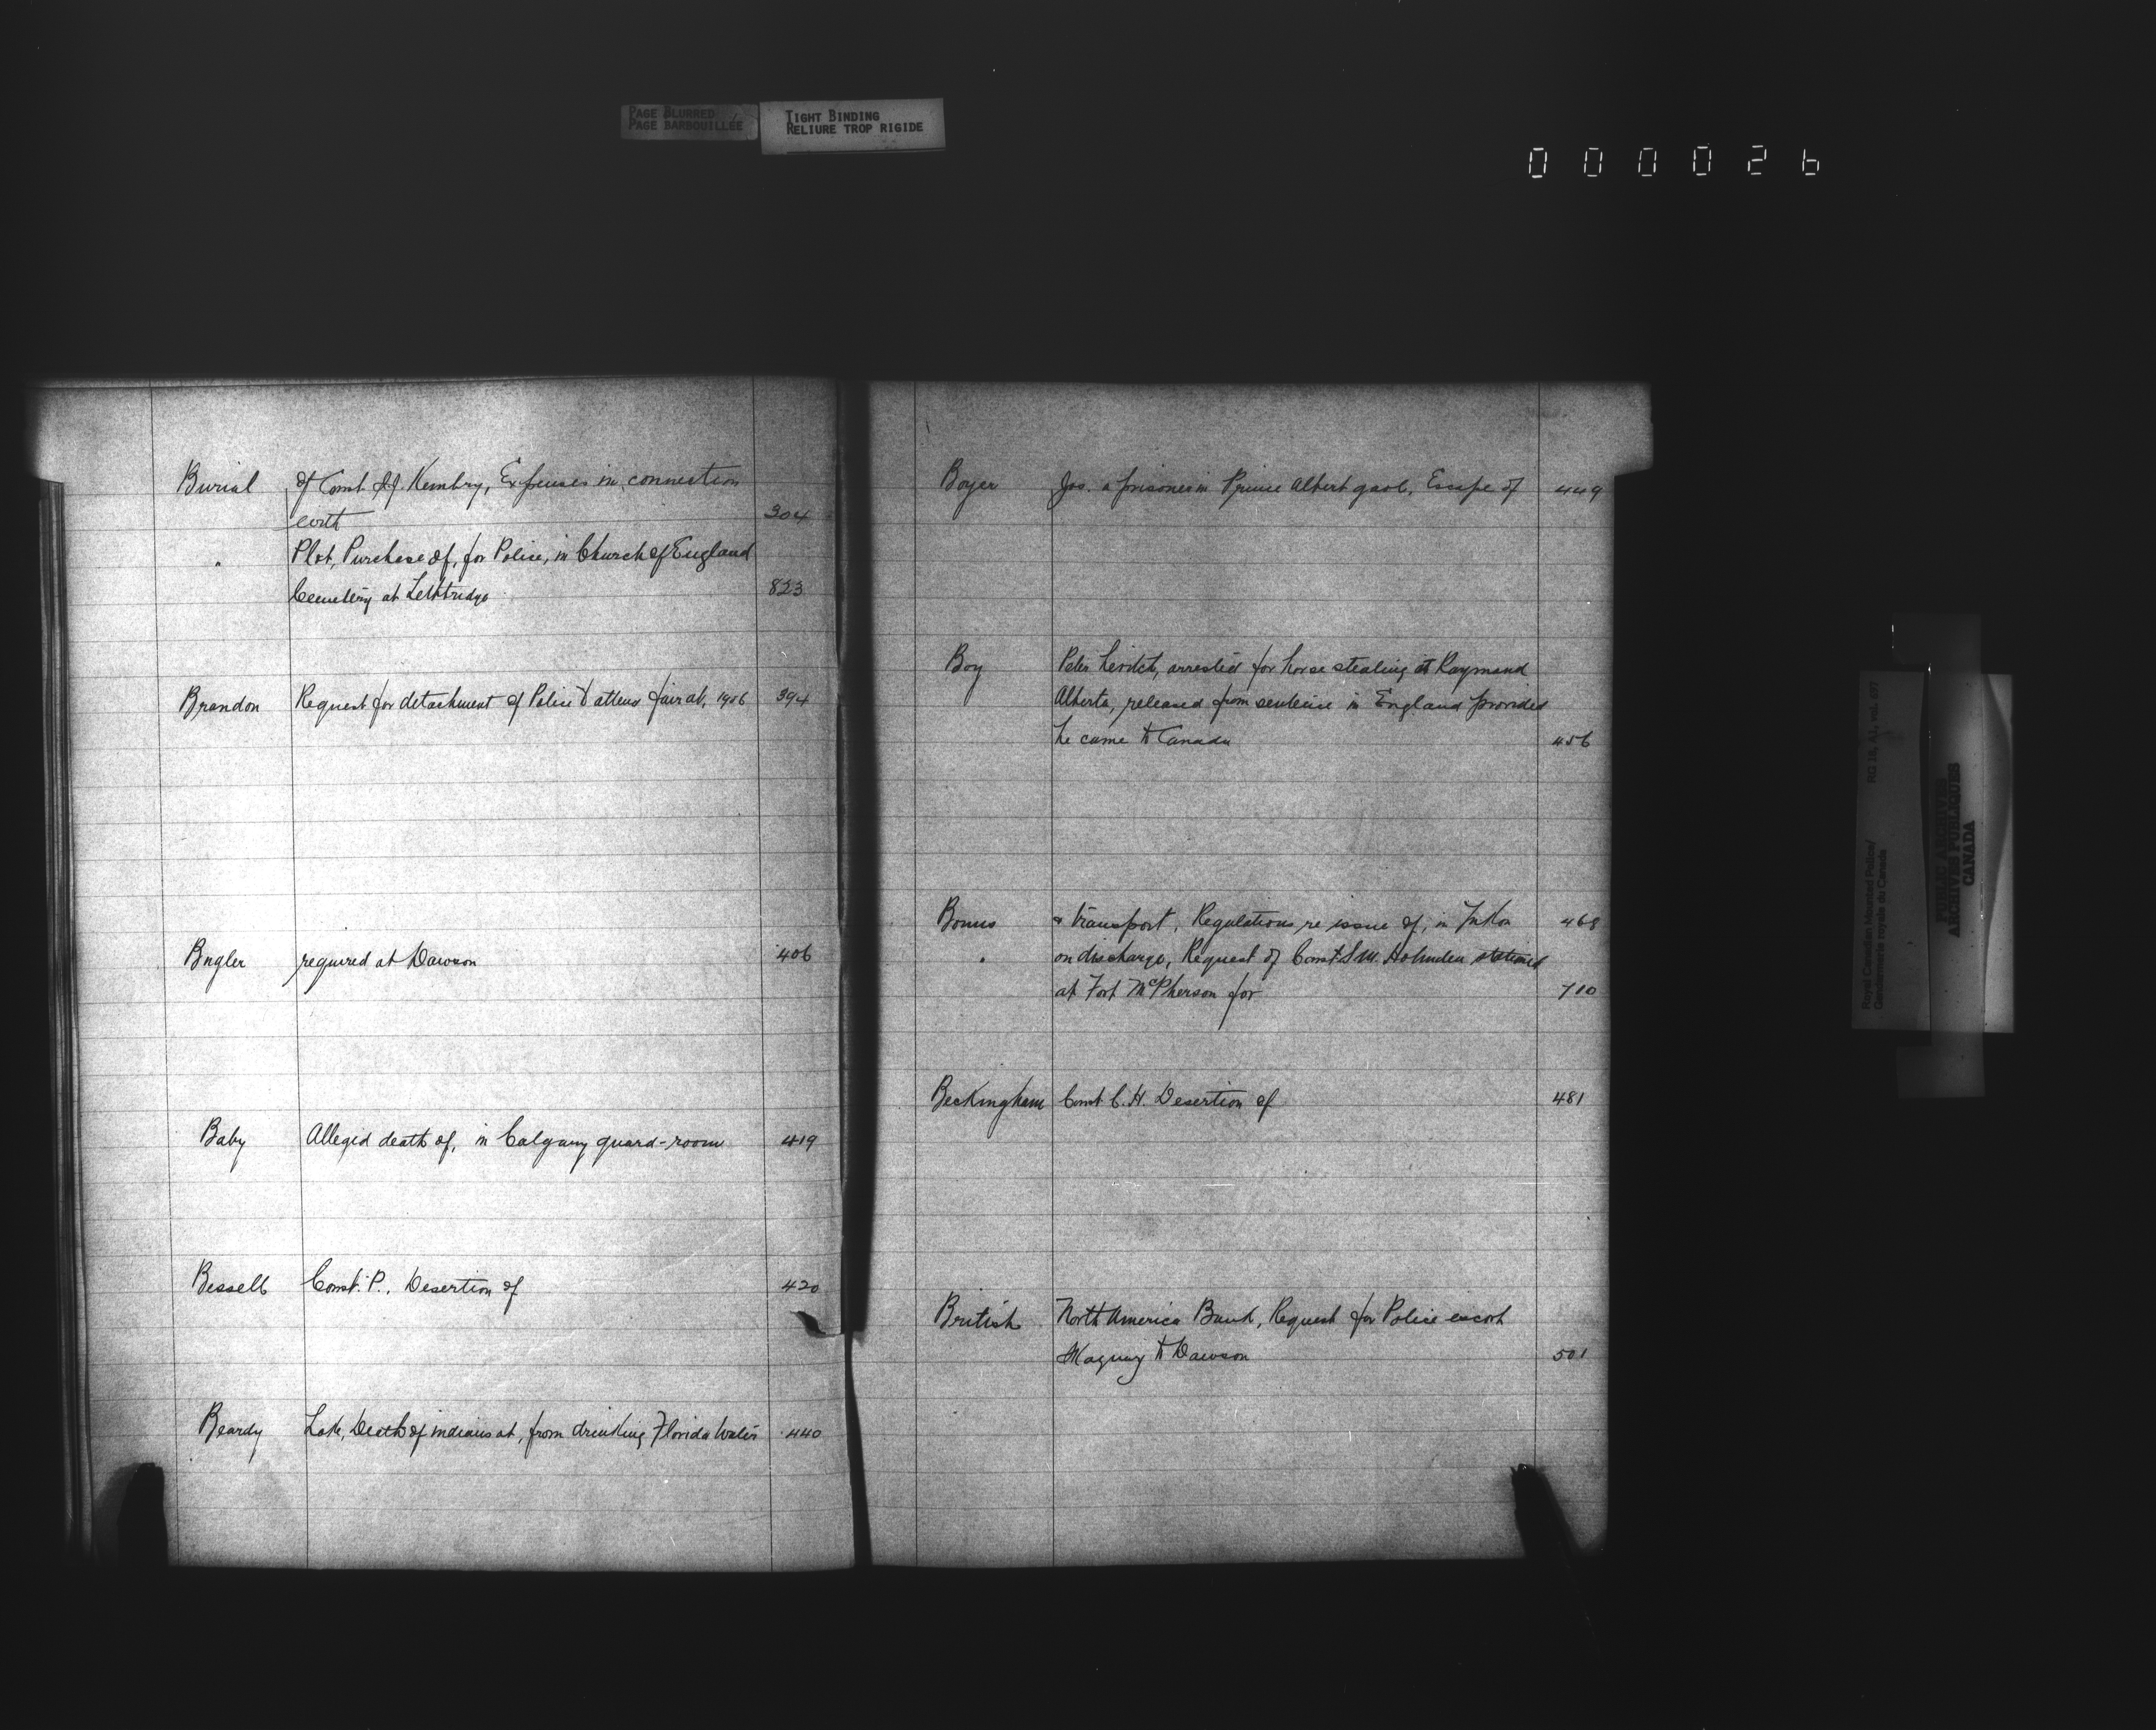 PAGE BLURRED
PAGE BARBOUILLÉE
TIGHT BINDING
RELIURE TROP RIGIDE
000026
Burial of Const. J.J. Kembry, Expenses in connection
with 304
" Plot, Purchase of, for Police, in Church of England
Cemetery at Lethbridge 823
Brandon Request for detachment of Police to attend fair at, 1906 394
Bugler required at Dawson 406
Baby Alleged death of, in Calgary guard-room 419
Bessell Const. P., Desertion of 420
Beardy Lake, Death of indians at, from drinking Florida Water 440
Boyer Jos. a prisoner in Prince Albert gaol, Escape of 449
Boy Peter arrested for horse stealing at Raymond
Alberta, released from sentence in England provided
he came to Canada 456
Bonus & transport, Regulations re issue of, in Yukon 468
" on discharge, Request of Const. S.W. Holmden stationed
at Fort McPherson for 710
Beckingham Const. C.H. Desertion of 481
British North America Bank, Request for Police escort
to Dawson 501
Royal Canadian Mounted Police/
Gendarmerie royale du Canada
RG 18, A1, vol. 697
PUBLIC ARCHIVES
ARCHIVES PUBLIQUES
CANADA